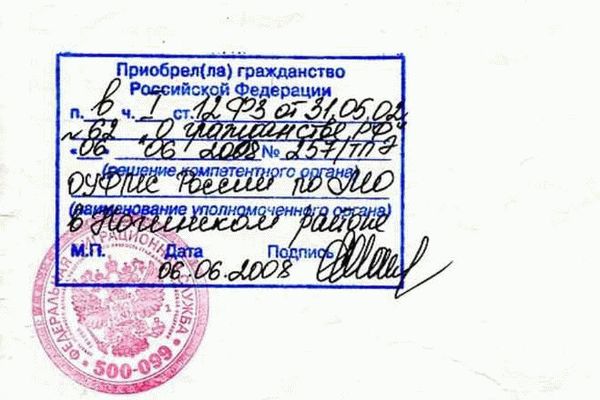 Приобрел(ла) гражданство
Российской Федерации
п. в ч. I ст. 12 ФЗ от 31.05.02.
№62 "О гражданстве РФ"
«06» 06 2008 № 257/ТП
(решение компетентного органа)
ОУФМС России по МО
(наименование уполномоченного органа)
в Ногинском районе
М.П. Дата Подпись
06.06.2008
ФЕДЕРАЛЬНАЯ МИГРАЦИОННАЯ СЛУЖБА
* 500-099 *